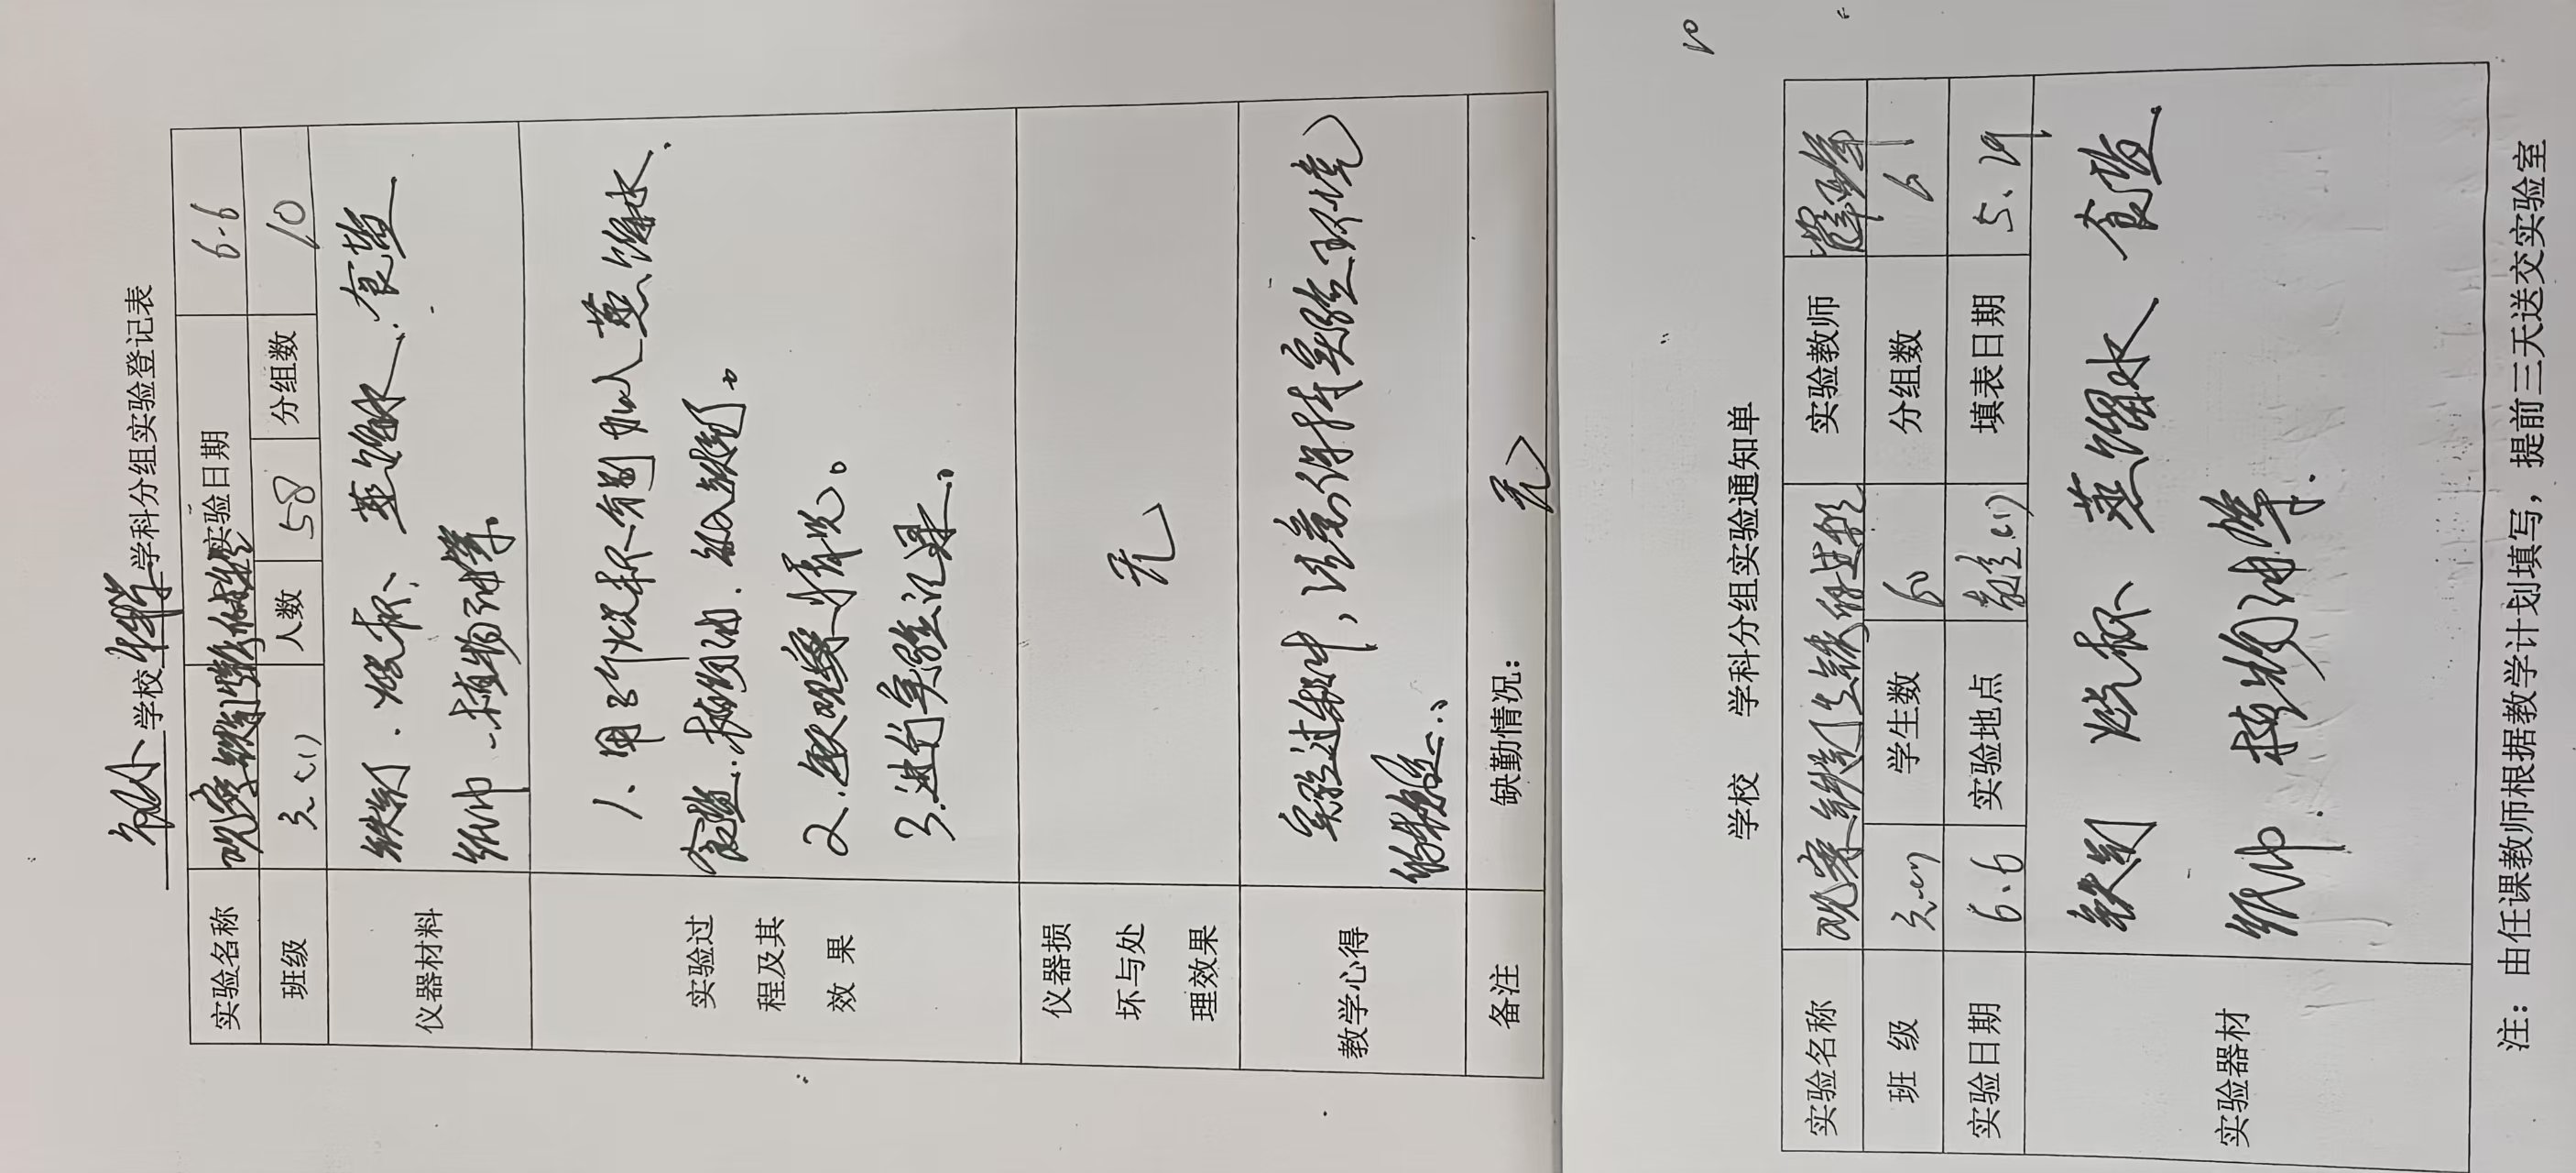 学校 科学 学科分组实验登记表
实验名称 观察铁钉生锈的进程 实验日期 6-6
班级 三(1) 人数 58 分组数 10
仪器材料 铁钉、烧杯、蒸馏水、食盐
纸巾、植物油等
实验过程及其效果
1、用3个烧杯分别加入蒸馏水、
食盐、植物油、放入铁钉。
2、 观察情况。
3、进行实验记录。
仪器损坏与处理效果 无
教学心得 实验过程中,注意保持实验环境
的
备注 缺勤情况: 无
10
学校 学科分组实验通知单
实验名称 观察铁钉生锈的进程 实验教师
班 级 三(1) 学生数 分组数
实验日期 6.6 实验地点 (1) 填表日期 5.29
实验器材 铁钉 烧杯、蒸馏水、食盐
纸巾、植物油等.
注:由任课教师根据教学计划填写,提前三天送交实验室